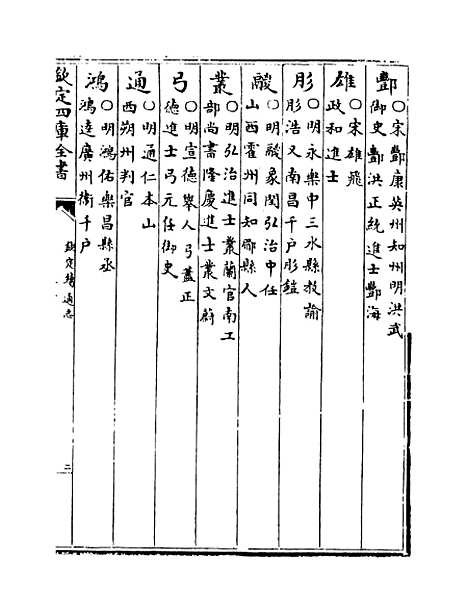 酆○宋酆康英州知州明洪武
御史酆洪正統進士酆海
雄○宋雄飛
政和進士
肜○明永樂中三水縣教諭
肜浩又南昌千戶肜鎧
醙○明醙象閔弘治中任
山西霍州同知鄢縣人
叢○明弘治進士叢蘭官南工
部尚書隆慶進士叢文蔚
弓○明宣德舉人弓蓋正
德進士弓元任御史
通○明通仁本山
西朔州判官
鴻○明鴻佑樂昌縣丞
鴻逵廣州衛千戶
欽定四庫全書
欽定續通志
三